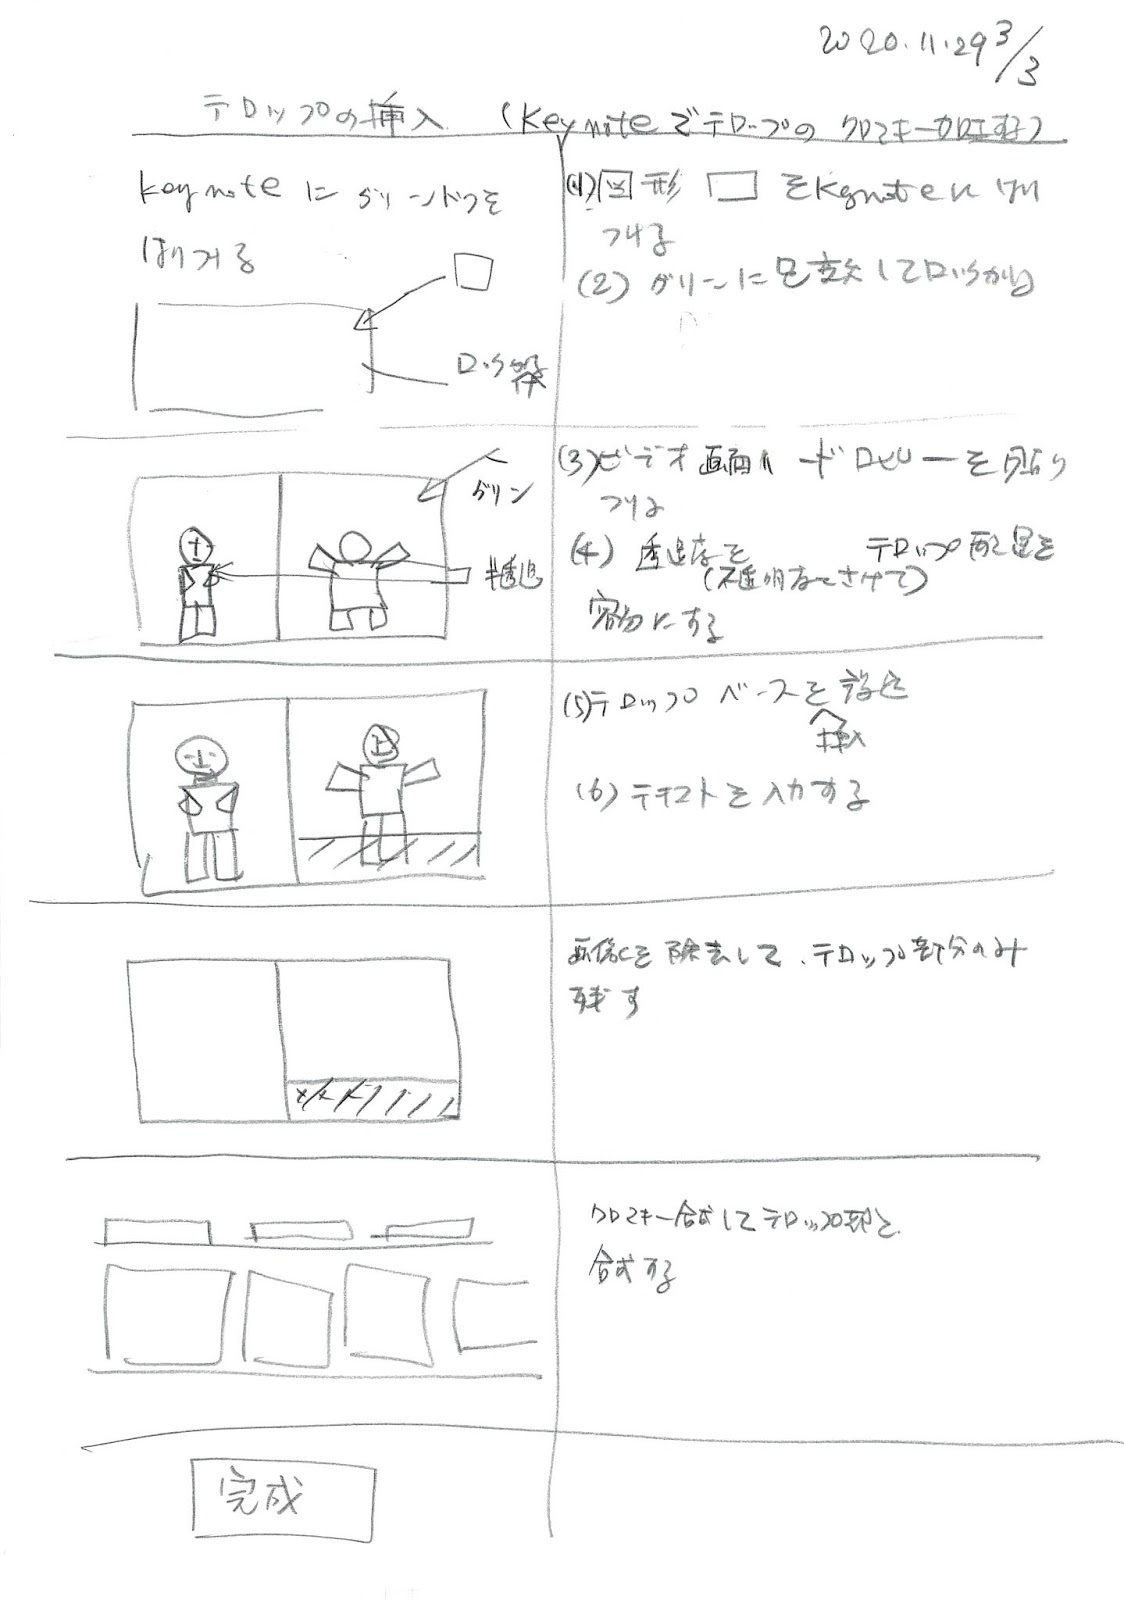 2020.11.29 3/3
テロップの挿入 (Keynoteでテロップの クロマキー加工する)
Keynoteに グリーンバックを
はりつける
ロック解除
(1)図形 □ をKeynoteにはり
つける
(2) グリーンに変換してロックかける
グリーン
半透過
(3)ビデオ画面 コピーを貼り
つける
(4) 透過度を テロップ配置を
(不透明度をさげて)
容易にする
(5)テロップ ベースを
挿入
(6) テキストを入力する
画像を除去して、テロップ部分のみ
残す
クロマキー合成してテロップ部を
合成する
完成